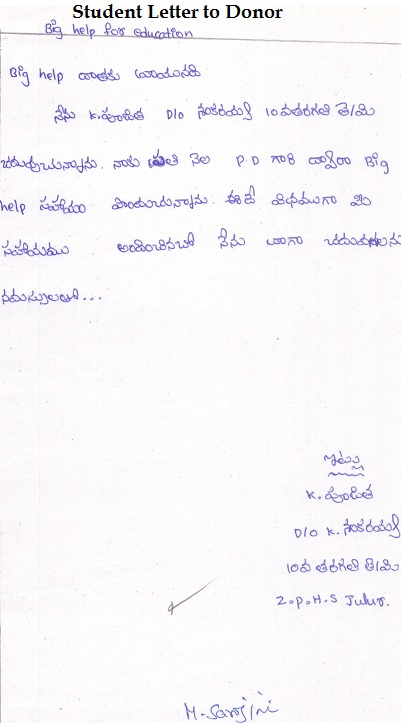 Student Letter to Donor
Big help for education
Big help దాతకు వ్రాయునది
నేను K. పూజిత D/o శంకరయ్య 10వతరగతి తె/మి
చదువుచున్నాను. నాకు ప్రతి నెల P.D గారి ద్వారా Big
help సహాయం పొందుచున్నాను. ఈదే విధముగా మీ
సహాయము అందించినచో నేను బాగా చదువగలను
నమస్సులతో...
ఇట్లు
K. పూజిత
D/o K. శంకరయ్య
10వ తరగతి తె/మి
Z.P.H.S Julur.
M. Sarojini